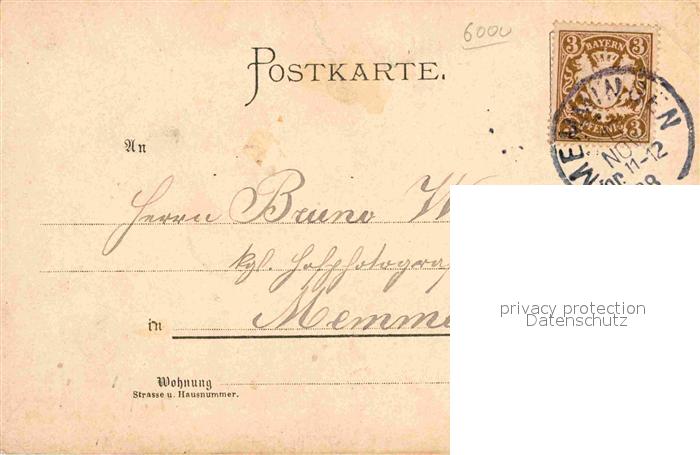 6000
POSTKARTE.
3 BAYERN 3
3 PFENNIG 3
MEMMINGEN
NO
11-12
98
An
Herrn Bruno W
kgl. Hofphotogra
in Memme
privacy protection
Datenschutz
Wohnung
Strasse u. Hausnummer.